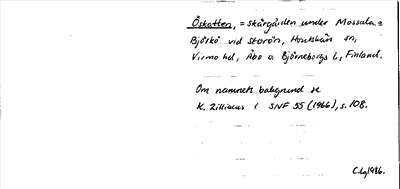 Öskatten, = skärgården under Mossala =
Björkö vid Storön, Houtskärs sn,
Virmo hd, Åbo o. Björneborgs l., Finland.
Om namnets bakgrund se
K. Zilliacus i SNF 55 (1966), s. 108.
C. Lg 1986.